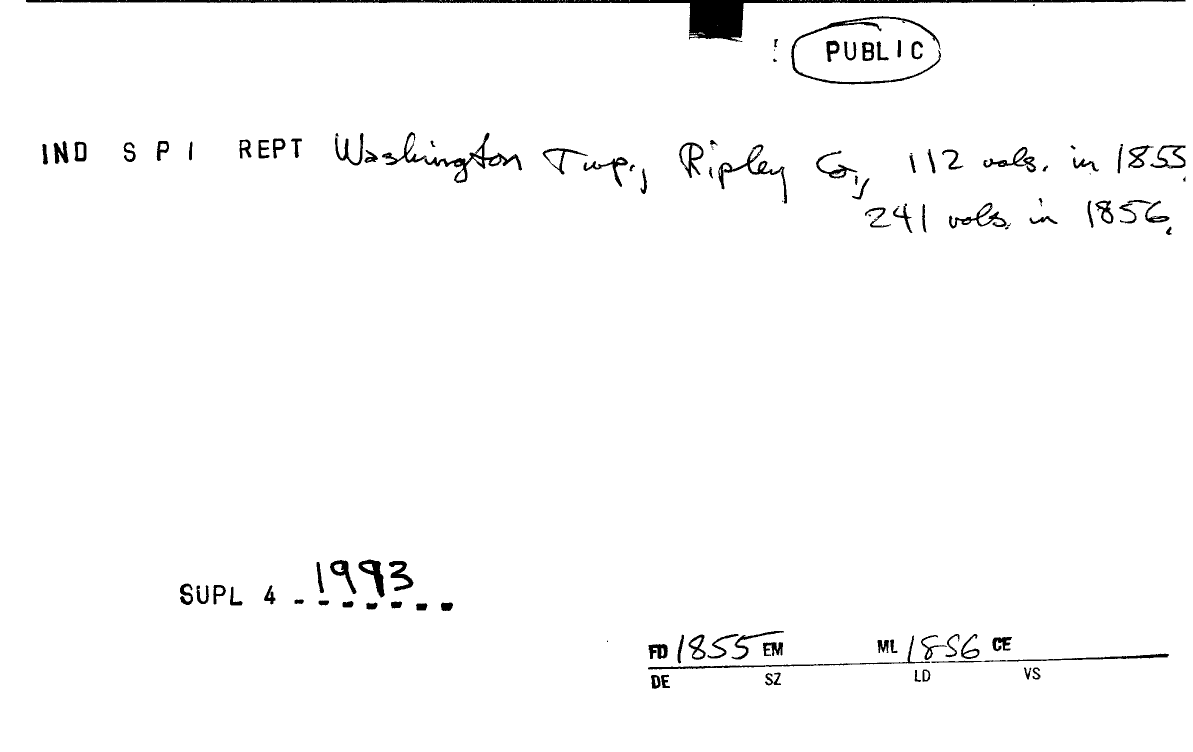 PUBLIC
IND S P I REPT Washington Twp., Ripley Co., 112 vols. in 1855.
241 vols. in 1856.
SUPL 4 1993
FD 1855 EM ML 1856 CE
DE SZ LD VS